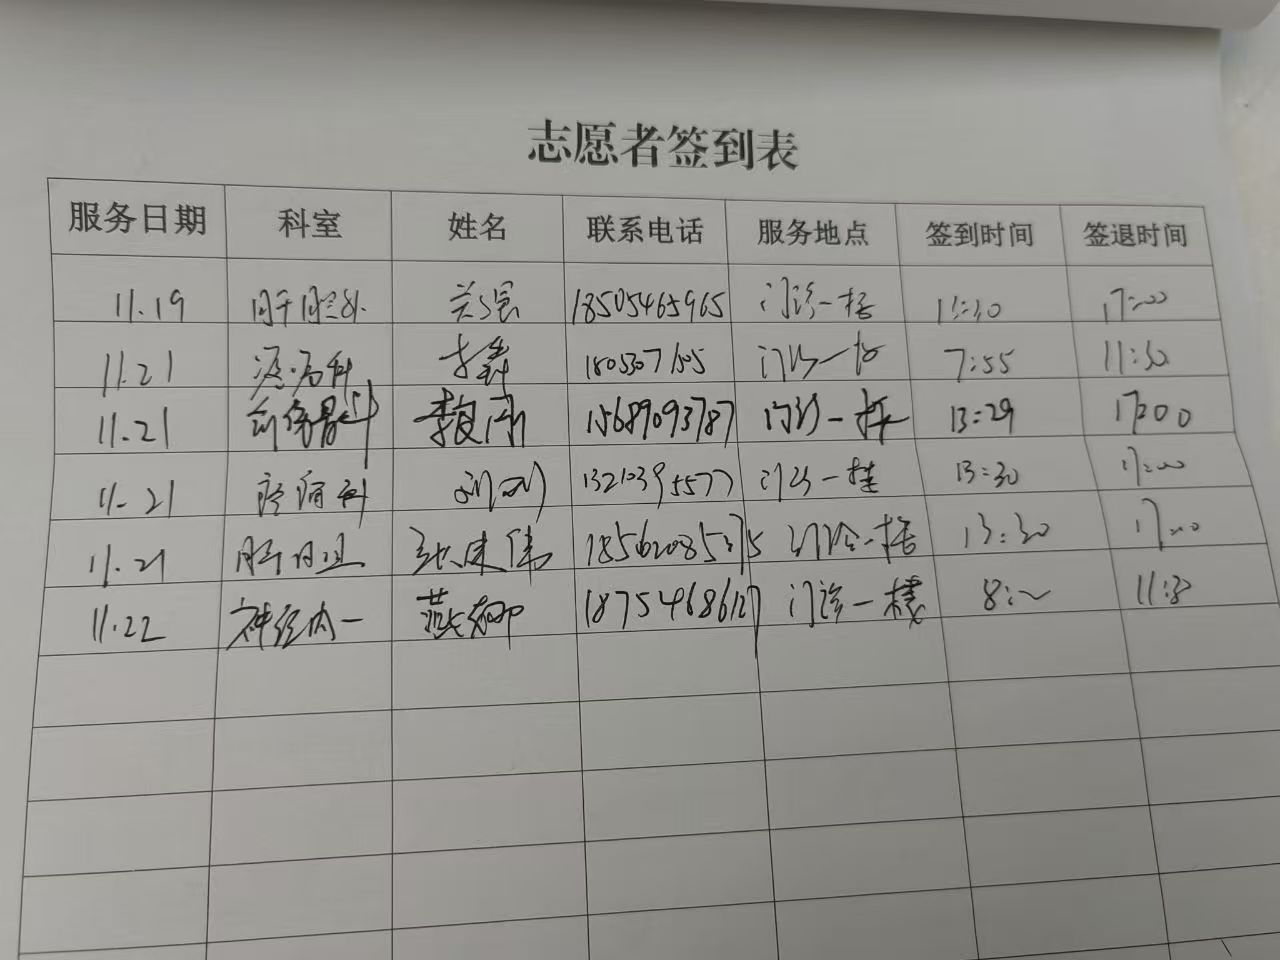 志愿者签到表
服务日期 科室 姓名 联系电话 服务地点 签到时间 签退时间
11.19 肝胆外 关强 18505465965 门诊一楼 17:00
11.21 科 门诊一楼 7:55 11:30
11.21 创伤骨科 李 15689093787 门诊一楼 13:29 17:00
11.21 疼痛科 刘 13210395577 门诊一楼 13:30 17:00
11.21 张 门诊一楼 13:30 17:00
11.22 神经内一 燕娜 18754686127 门诊一楼 8:00 11:30